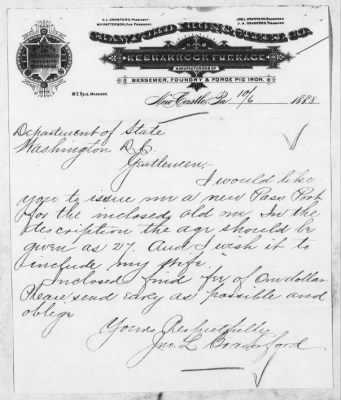 A.L. CRAWFORD, PRESIDENT.
WM PATTERSON, VICE PRESIDENT.
JNO L. CRAWFORD, SECRETARY
J.A. CRAWFORD, TREASURER
CRAWFORD IRON & STEEL CO.
NESHANNOCK FURNACE
MANUFACTURERS OF
BESSEMER, FOUNDRY & FORGE PIG IRON.
MANAGER.
New Castle, Pa 10/6 1888
Department of State
Washington D.C.
Gentlemen,-
I would like
you to issue me a new Pass Port
for the inclosed old one, In the
description the age should be
given as 27. And I wish it to
include my wife.
Inclosed find fee of One dollar
Please send early as possible and
oblige
Yours Respectfully
Jno. L. Crawford